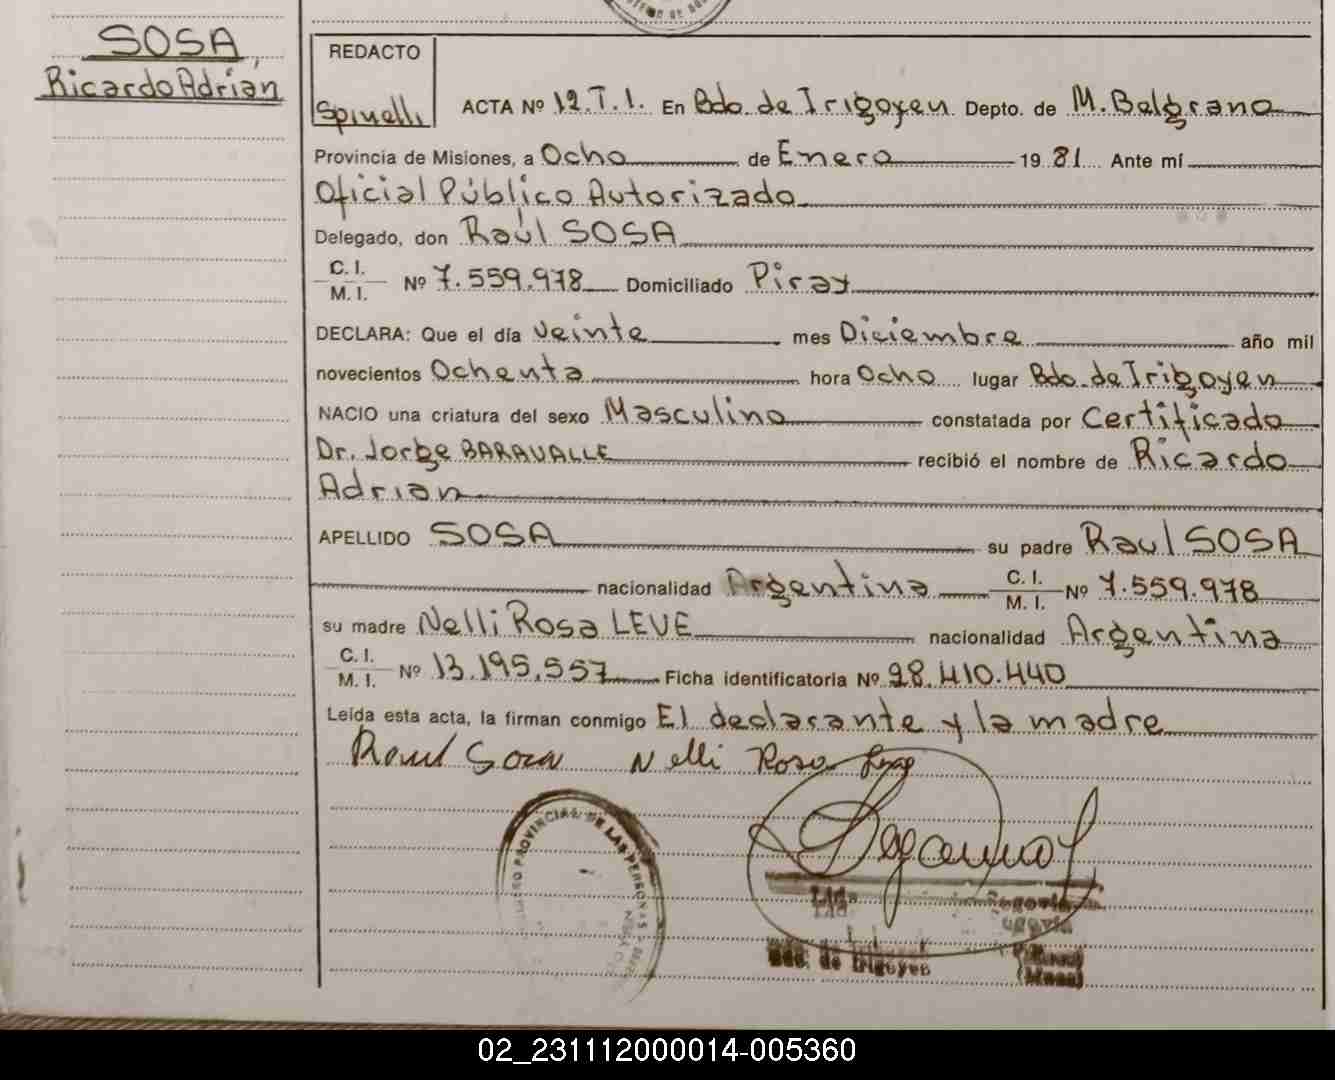 SOSA
Ricardo Adrián
REDACTO
Spinelli
ACTA Nº 12.T.1. En Bdo. de Irigoyen Depto. de M. Belgrano
Provincia de Misiones, a Ocho de Enero 1981 Ante mí
Oficial Público Autorizado
Delegado, don Raúl SOSA
C. I.
M. I. Nº 7.559.978 Domiciliado Piray
DECLARA: Que el día veinte mes Diciembre año mil
novecientos Ochenta hora Ocho lugar Bdo. de Irigoyen
NACIO una criatura del sexo Masculino constatada por Certificado
Dr. Jorge BARAVALLE recibió el nombre de Ricardo
Adrian
APELLIDO SOSA su padre Raul SOSA
nacionalidad Argentina C. I.
M. I. Nº 7.559.978
su madre Nelli Rosa LEVE nacionalidad Argentina
C. I.
M. I. Nº 13.195.557 Ficha identificatoria Nº 28.410.440
Leída esta acta, la firman conmigo El declarante y la madre
Raul Sosa Nelli Rosa
PROVINCIAL DE LAS PERSONAS
Segovia
Bdo. de Irigoyen (Mnes)
02_231112000014-005360